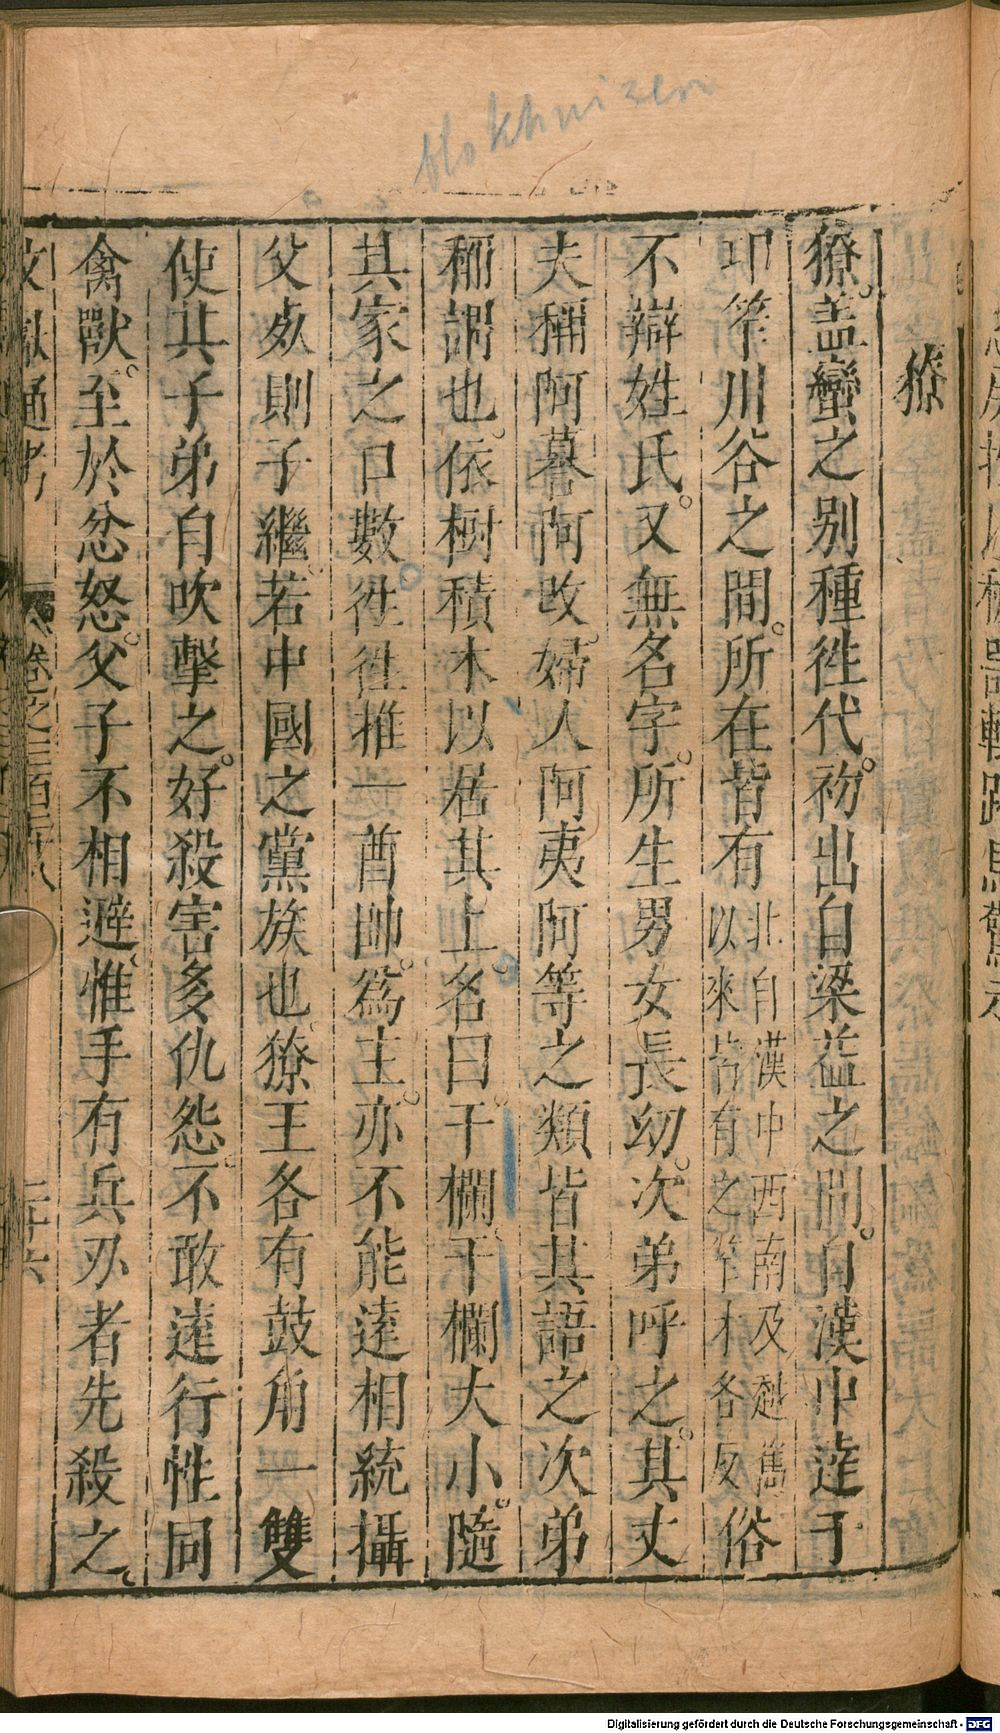 blokhuizen
獠
獠。蓋蠻之别種徃代。初出自梁益之間。自漢中達于
邛筰川谷之間。所在皆有北自漢中西南及越嶲以來皆有之筰才各反俗
不辯姓氏。又無名字。所生男女長幼。次弟呼之。其丈
夫稱阿暮阿改。婦人阿夷阿等之類皆其語之次弟
稱謂也。依樹積木以居其上。名曰。干欄。干欄大小。隨
其家之口數。徃徃推一酋帥。爲主。亦不能遠相統攝
父死則子繼。若中國之黨族也。獠王各有鼓角一雙
使其子弟自吹擊之。好殺害多仇怨。不敢遠行性同
禽獸。至於忿怒。父子不相避。惟手有兵刃者先殺之。
文獻通考 卷之三百二十八 二十六
Digitalisierung gefördert durch die Deutsche Forschungsgemeinschaft - DFG